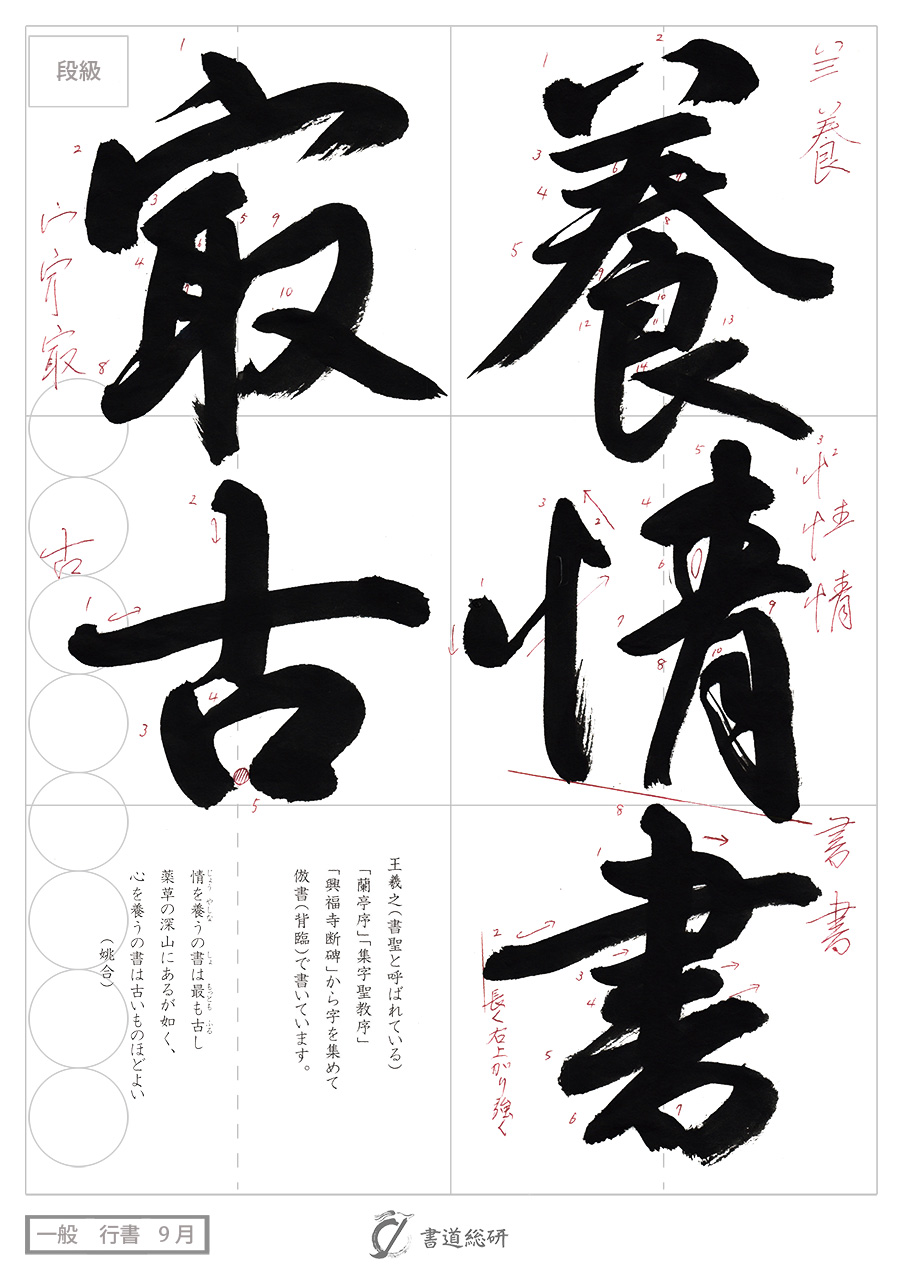 養情書
冣古
段級
王羲之(書聖と呼ばれている)
「蘭亭序」「集字聖教序」
「興福寺断碑」から字を集めて
倣書(背臨)で書いています。
情を養うの書は最も古し
じょう やしな しょ もっとも ふる
薬草の深山にあるが如く、
心を養うの書は古いものほどよい
(姚合)
養
情
書
長く右上がり強く
冣
古
一般 行書 9月
書道総研